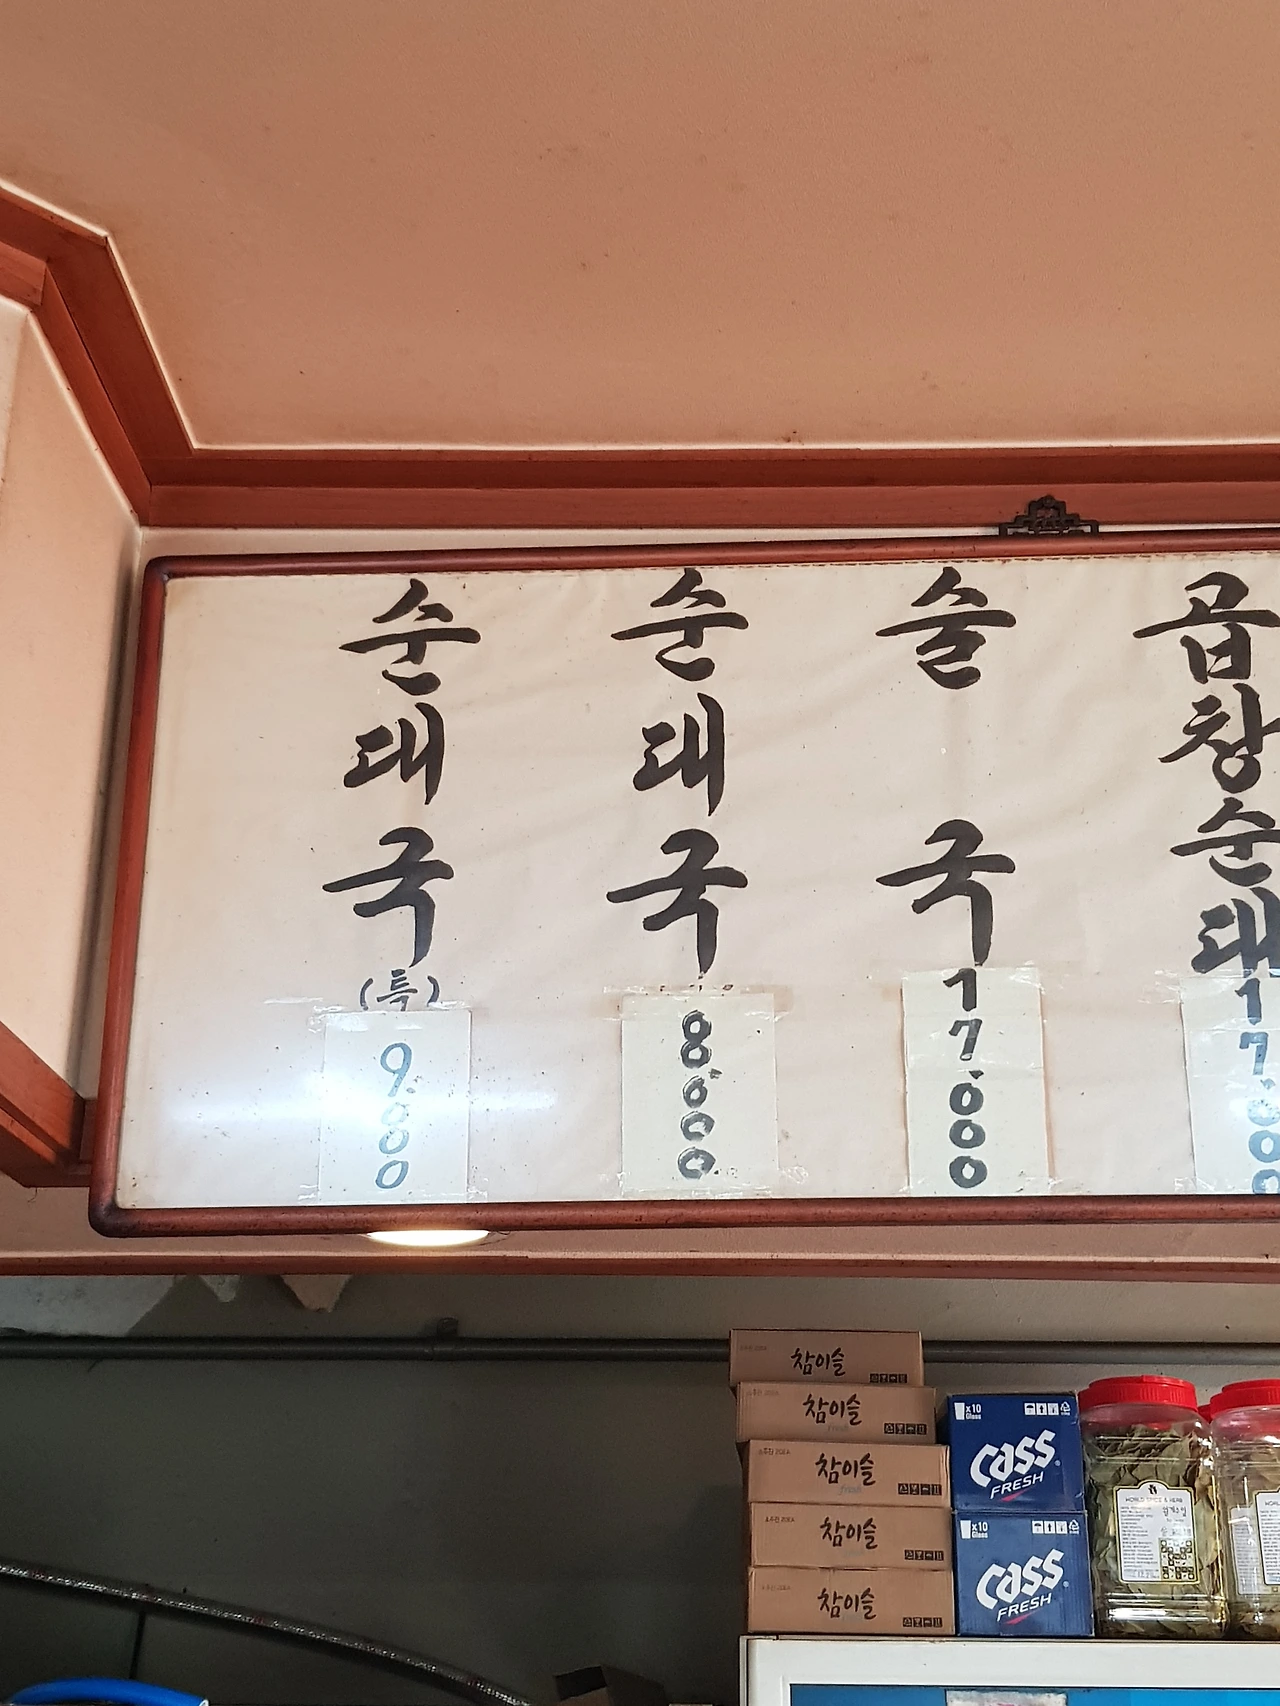 순대국
(특)
9.000
순대국
8.000
술국
17.000
곱창순대
17.000
참이슬
참이슬
fresh
참이슬
fresh
참이슬
참이슬
x10
Glass
Cass
FRESH
x10
Glass
Cass
FRESH
WORLD SPICE & HERB
월계수잎